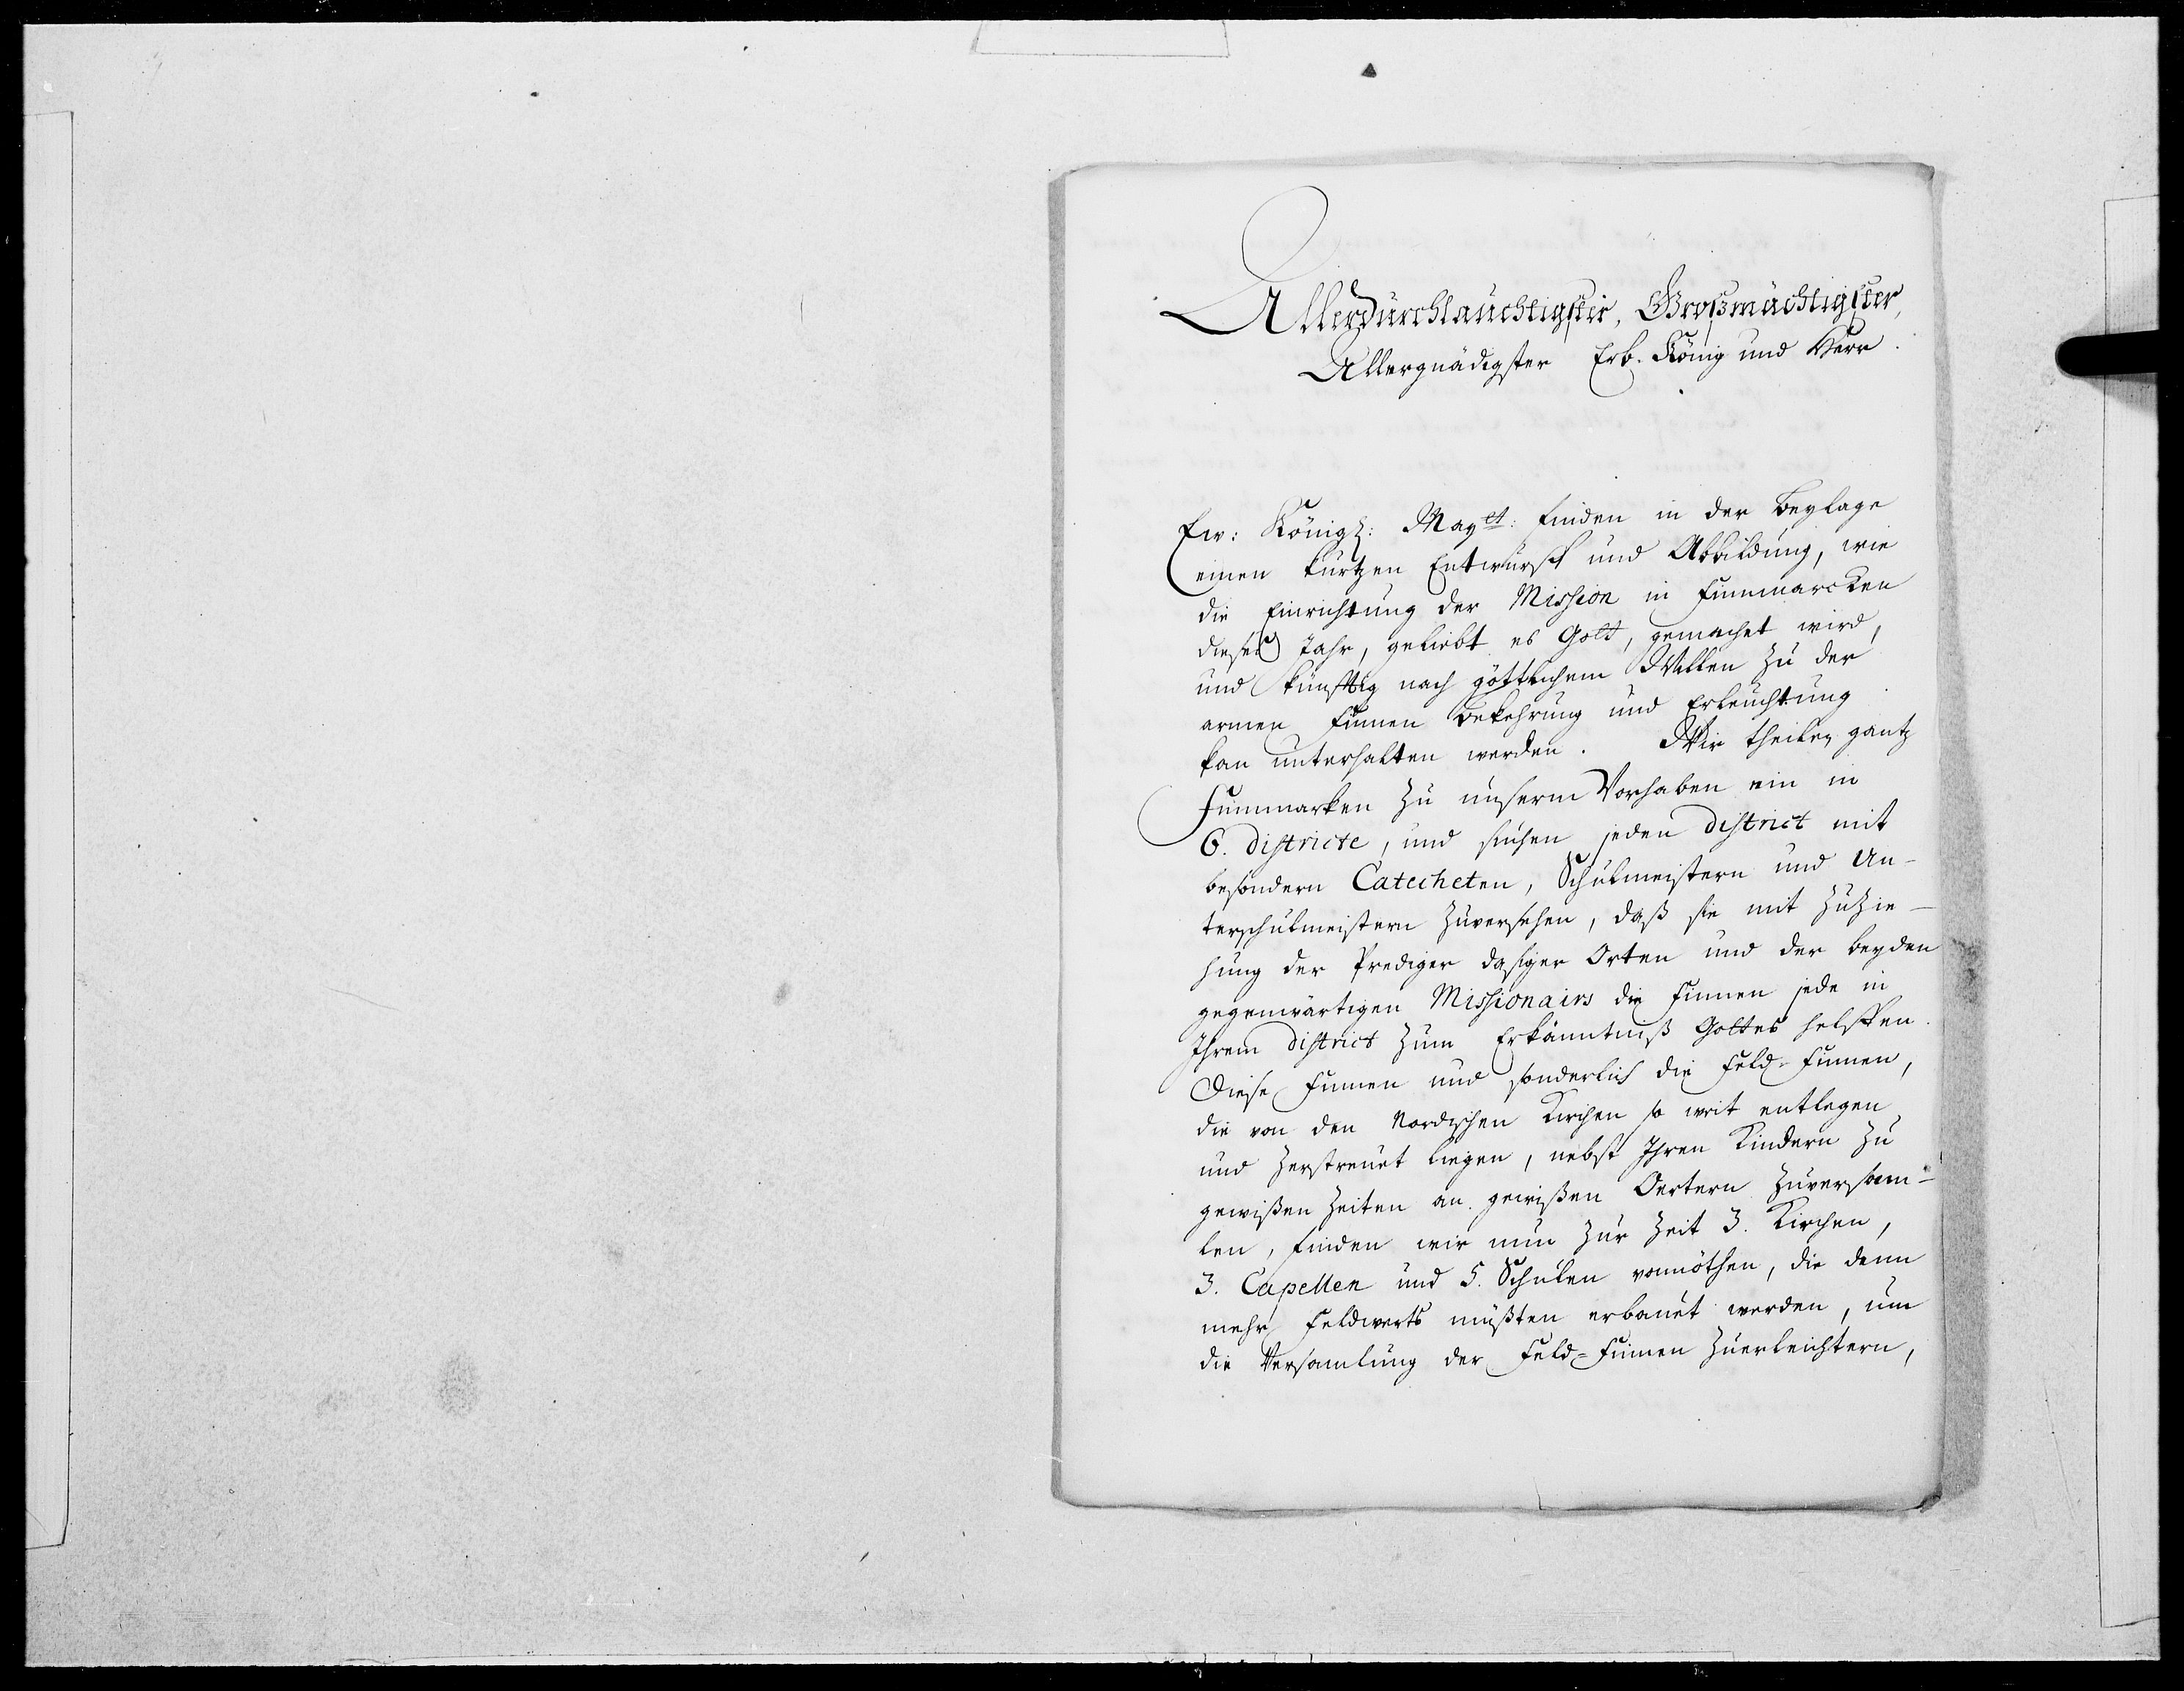 Allerdurchlauchtigster, Großmächtigster,
Allergnädigster Erb. König und Herr.
Ew: Königl: Mayet: finden in der Beylage
einen kurtzen Entwurff und Abbildung, wie
die Einrichtung der Mission in Finnmarcken
dieses Jahr, geliebt es Gott, gemachet wird,
und künfftig nach göttlichem Willen zu der
armen Finnen Bekehrung und Erleuchtung
kan unterhalten werden. Wir theilen gantz
Finnmarken zu unserm Vorhaben ein in
6. districte, und suchen jeden district mit
besondern Catecheten, Schulmeistern und Un-
terschulmeistern zuversehen, daß sie mit Zuzie-
hung der Prediger dasiger Orten und der beyden
gegenwärtigen Missionairs die Finnen jede in
Ihrem district zum Erkänntniß Gottes helffen.
Diese Finnen und sonderlich die Feld-Finnen,
die von den Nordischen Kirchen so weit entlegen,
und zerstreuet liegen, nebst Ihren Kindern zu
gewißen Zeiten an gewißen Oertern zuversam-
len, finden wir nun zur Zeit 3. Kirchen,
3. Capellen und 5. Schulen vonnöthen, die denn
mehr Feldwerts müßten erbauet werden, um
die Versamlung der Feld=Finnen zuerleichtern,